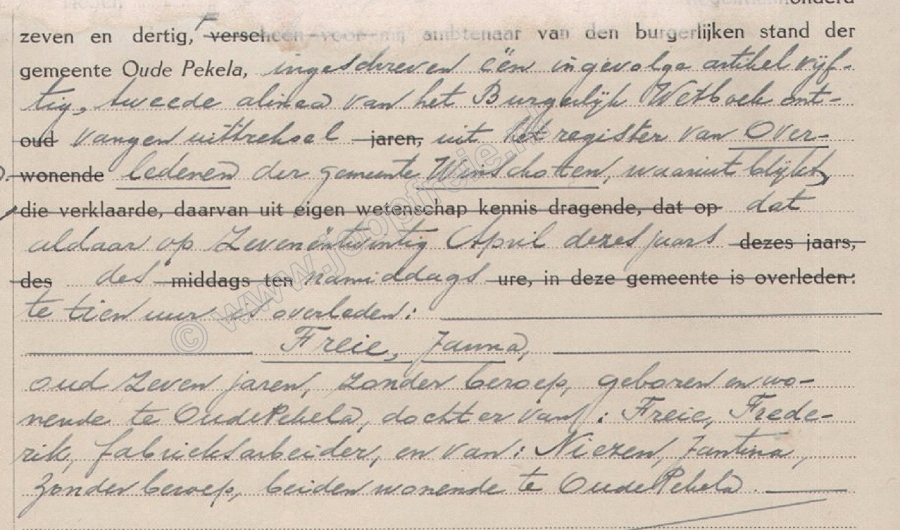 zeven en dertig, verscheen voor mij ambtenaar van den burgerlijken stand der
gemeente Oude Pekela, ingeschreven één ingevolge artikel vijf-
tig, tweede alinea van het Burgerlijk Wetboek ont-
oud vangen uittreksel jaren, uit het register van Over-
wonende ledenen der gemeente Winschoten, waaruit blijkt,
die verklaarde, daarvan uit eigen wetenschap kennis dragende, dat op dat
aldaar op Zevenëntwintig April dezes jaars dezes jaars,
des des middags ten namiddags ure, in deze gemeente is overleden:
te tien uur is overleden:
Freie, Janna,
oud zeven jaren, zonder beroep, geboren en wo-
nende te Oude Pekela, dochter van: Freie, Frede-
rik, fabrieksarbeider, en van: Niezen, Jantina,
zonder beroep, beiden wonende te Oude Pekela.